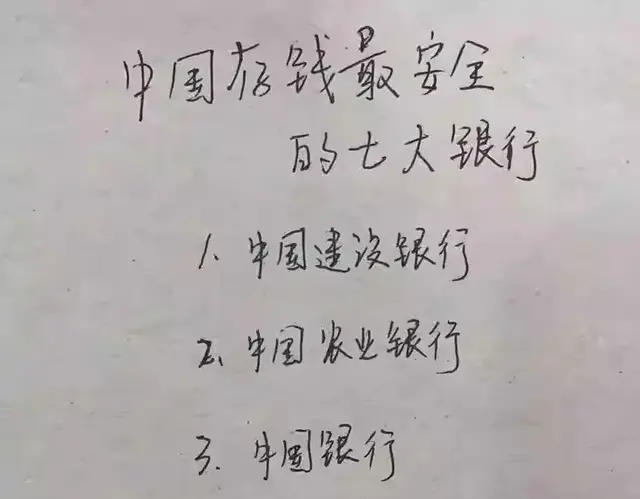 中国存钱最安全
的七大银行
1. 中国建设银行
2. 中国农业银行
3. 中国银行